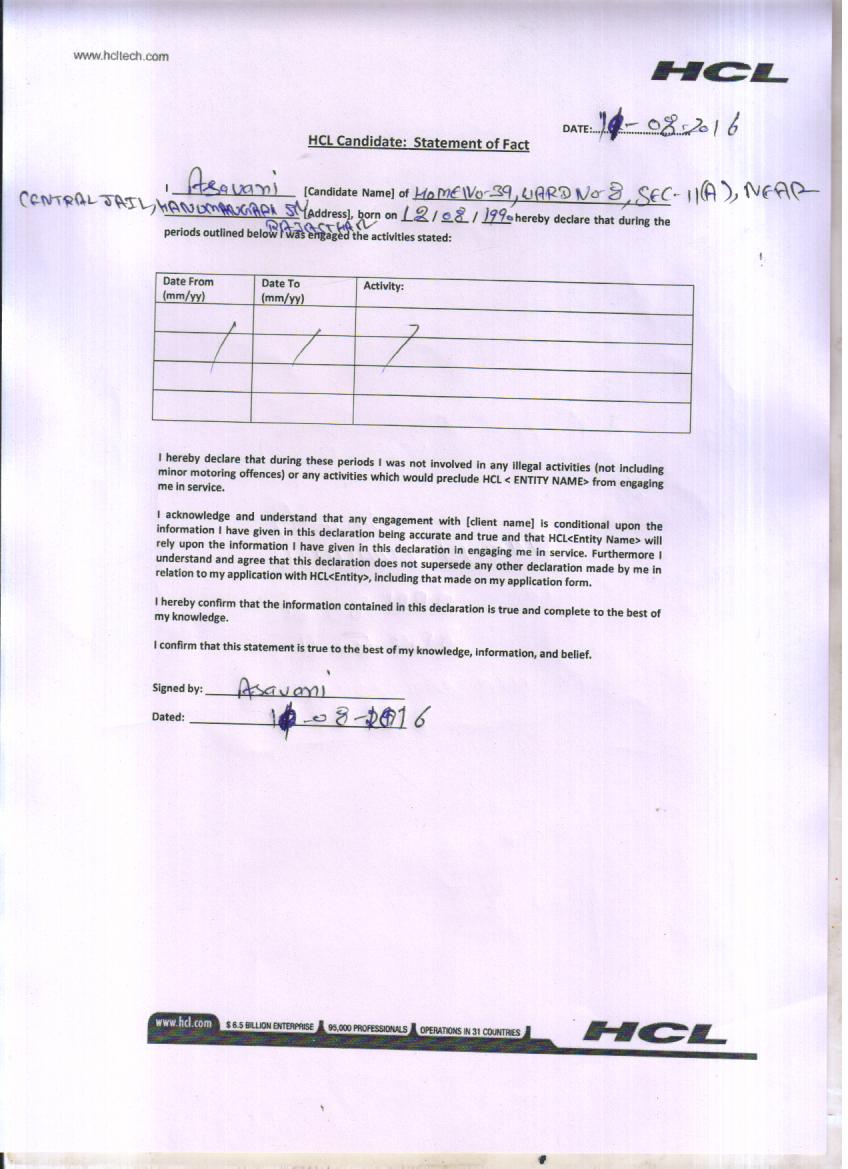 www.hcltech.com
HCL
DATE:...-08-2016
HCL Candidate: Statement of Fact
I Asavani [Candidate Name] of HOME NO-39, WARD NO 8, SEC-11(A), NEAR
CENTRAL JAIL, HANUMANGARH [Address], born on 12/08/1990 hereby declare that during the
RAJASTHAN
periods outlined below I was engaged the activities stated:
Date From Date To Activity:
(mm/yy) (mm/yy)
/ / /
I hereby declare that during these periods I was not involved in any illegal activities (not including
minor motoring offences) or any activities which would preclude HCL < ENTITY NAME> from engaging
me in service.
I acknowledge and understand that any engagement with [client name] is conditional upon the
information I have given in this declaration being accurate and true and that HCL<Entity Name> will
rely upon the information I have given in this declaration in engaging me in service. Furthermore I
understand and agree that this declaration does not supersede any other declaration made by me in
relation to my application with HCL<Entity>, including that made on my application form.
I hereby confirm that the information contained in this declaration is true and complete to the best of
my knowledge.
I confirm that this statement is true to the best of my knowledge, information, and belief.
Signed by: Asavani
Dated: -08-2016
www.hcl.com $ 6.5 BILLION ENTERPRISE 95,000 PROFESSIONALS OPERATIONS IN 31 COUNTRIES HCL